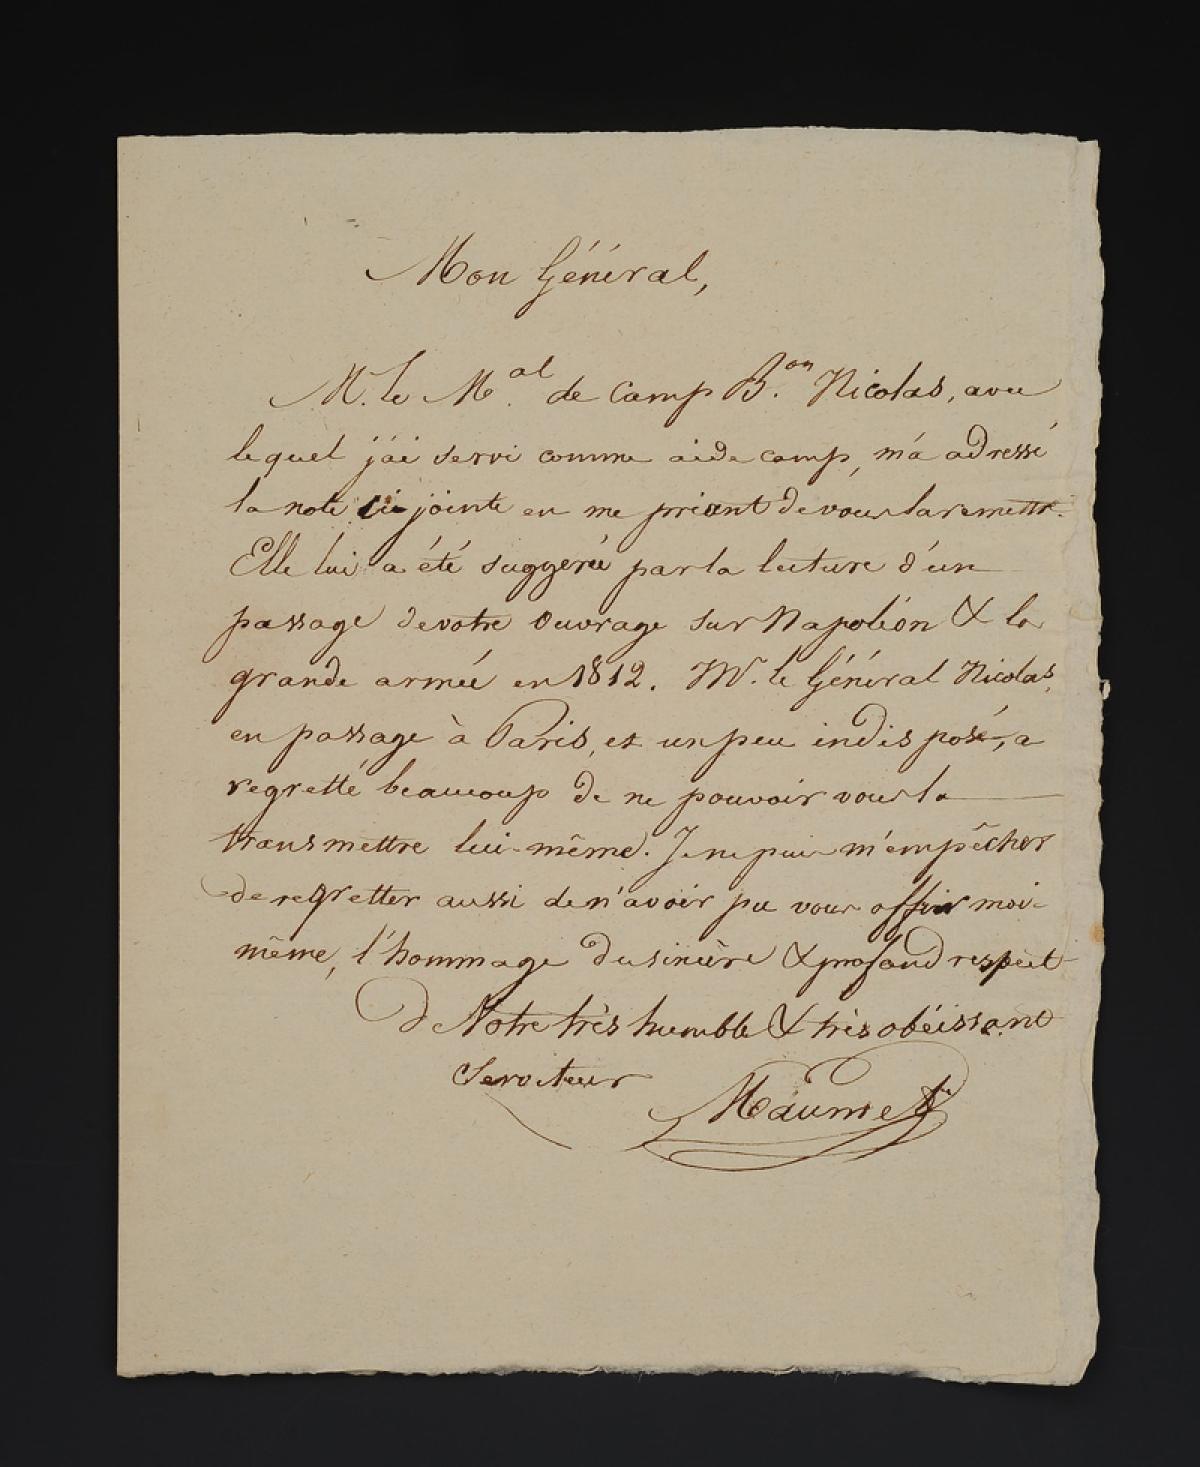 Mon Général,
M. le M.al de camp B.on Nicolas, avec
lequel j'ai servi comme aide camp, m'a adressé
la note ci jointe en me priant de vous la remettre.
Elle lui a été suggerée par la lecture d'un
passage de votre ouvrage sur Napoléon & la
grande armée en 1812. Mr. le Général Nicolas,
en passage à Paris, et un peu indisposé, a
regretté beaucoup de ne pouvoir vous la
transmettre lui-même. Je ne puis m'empêcher
de regretter aussi de n'avoir pu vous offrir moi-
même, l'hommage du sincère & profond respect
de Votre très humble & très obéissant
Serviteur
Maumet